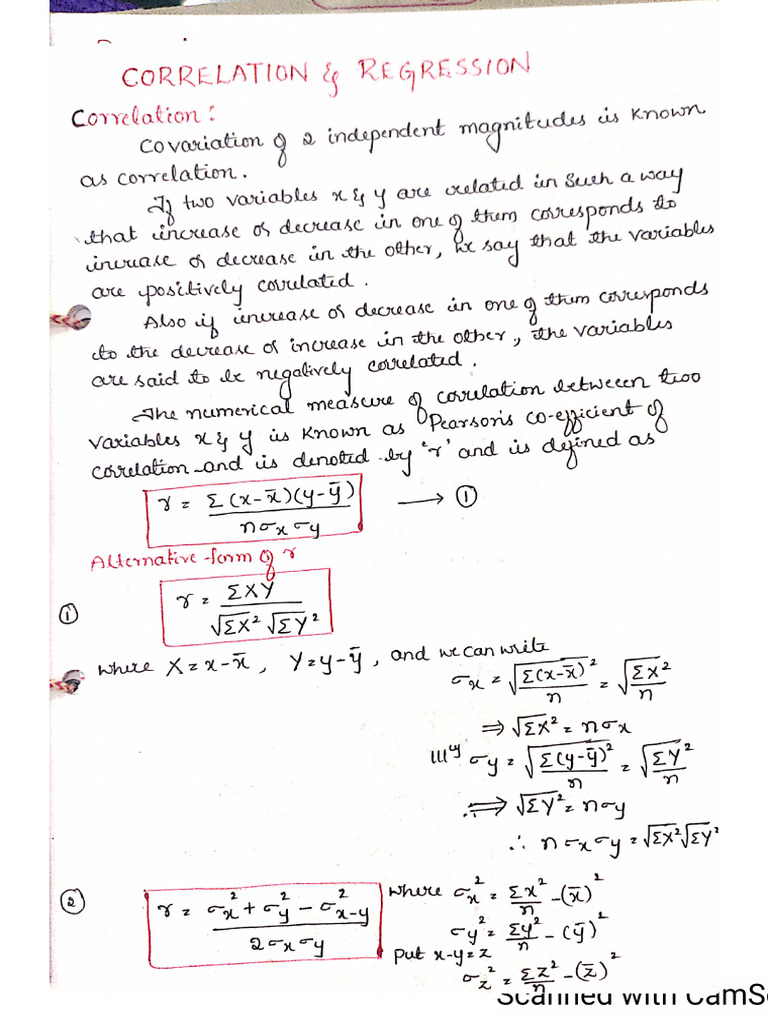 CORRELATION & REGRESSION
Correlation:
Covariation of 2 independent magnitudes is known
as correlation.
If two variables x & y are related in such a way
that increase or decrease in one of them corresponds to
increase or decrease in the other, we say that the variables
are positively correlated.
Also if increase or decrease in one of them corresponds
to the decrease or increase in the other, the variables
are said to be negatively correlated.
The numerical measure of correlation between two
variables x & y is known as Pearson's co-efficient of
correlation and is denoted by 'r' and is defined as
r = Σ(x-x̄)(y-ȳ) / nσx σy → ①
Alternative form of r
① r = ΣXY / √ΣX² √ΣY²
where X = x-x̄, Y = y-ȳ, and we can write
σx = √Σ(x-x̄)²/n = √ΣX²/n
⇒ √ΣX² = nσx
lllly σy = √Σ(y-ȳ)²/n = √ΣY²/n
⇒ √ΣY² = nσy
∴ nσxσy = √ΣX² √ΣY²
② r = σx² + σy² - σ²x-y / 2σxσy where σx² = Σx²/n - (x̄)²
σy² = Σy²/n - (ȳ)²
put x-y = z
σz² = Σz²/n - (z̄)²
Scanned with CamSc